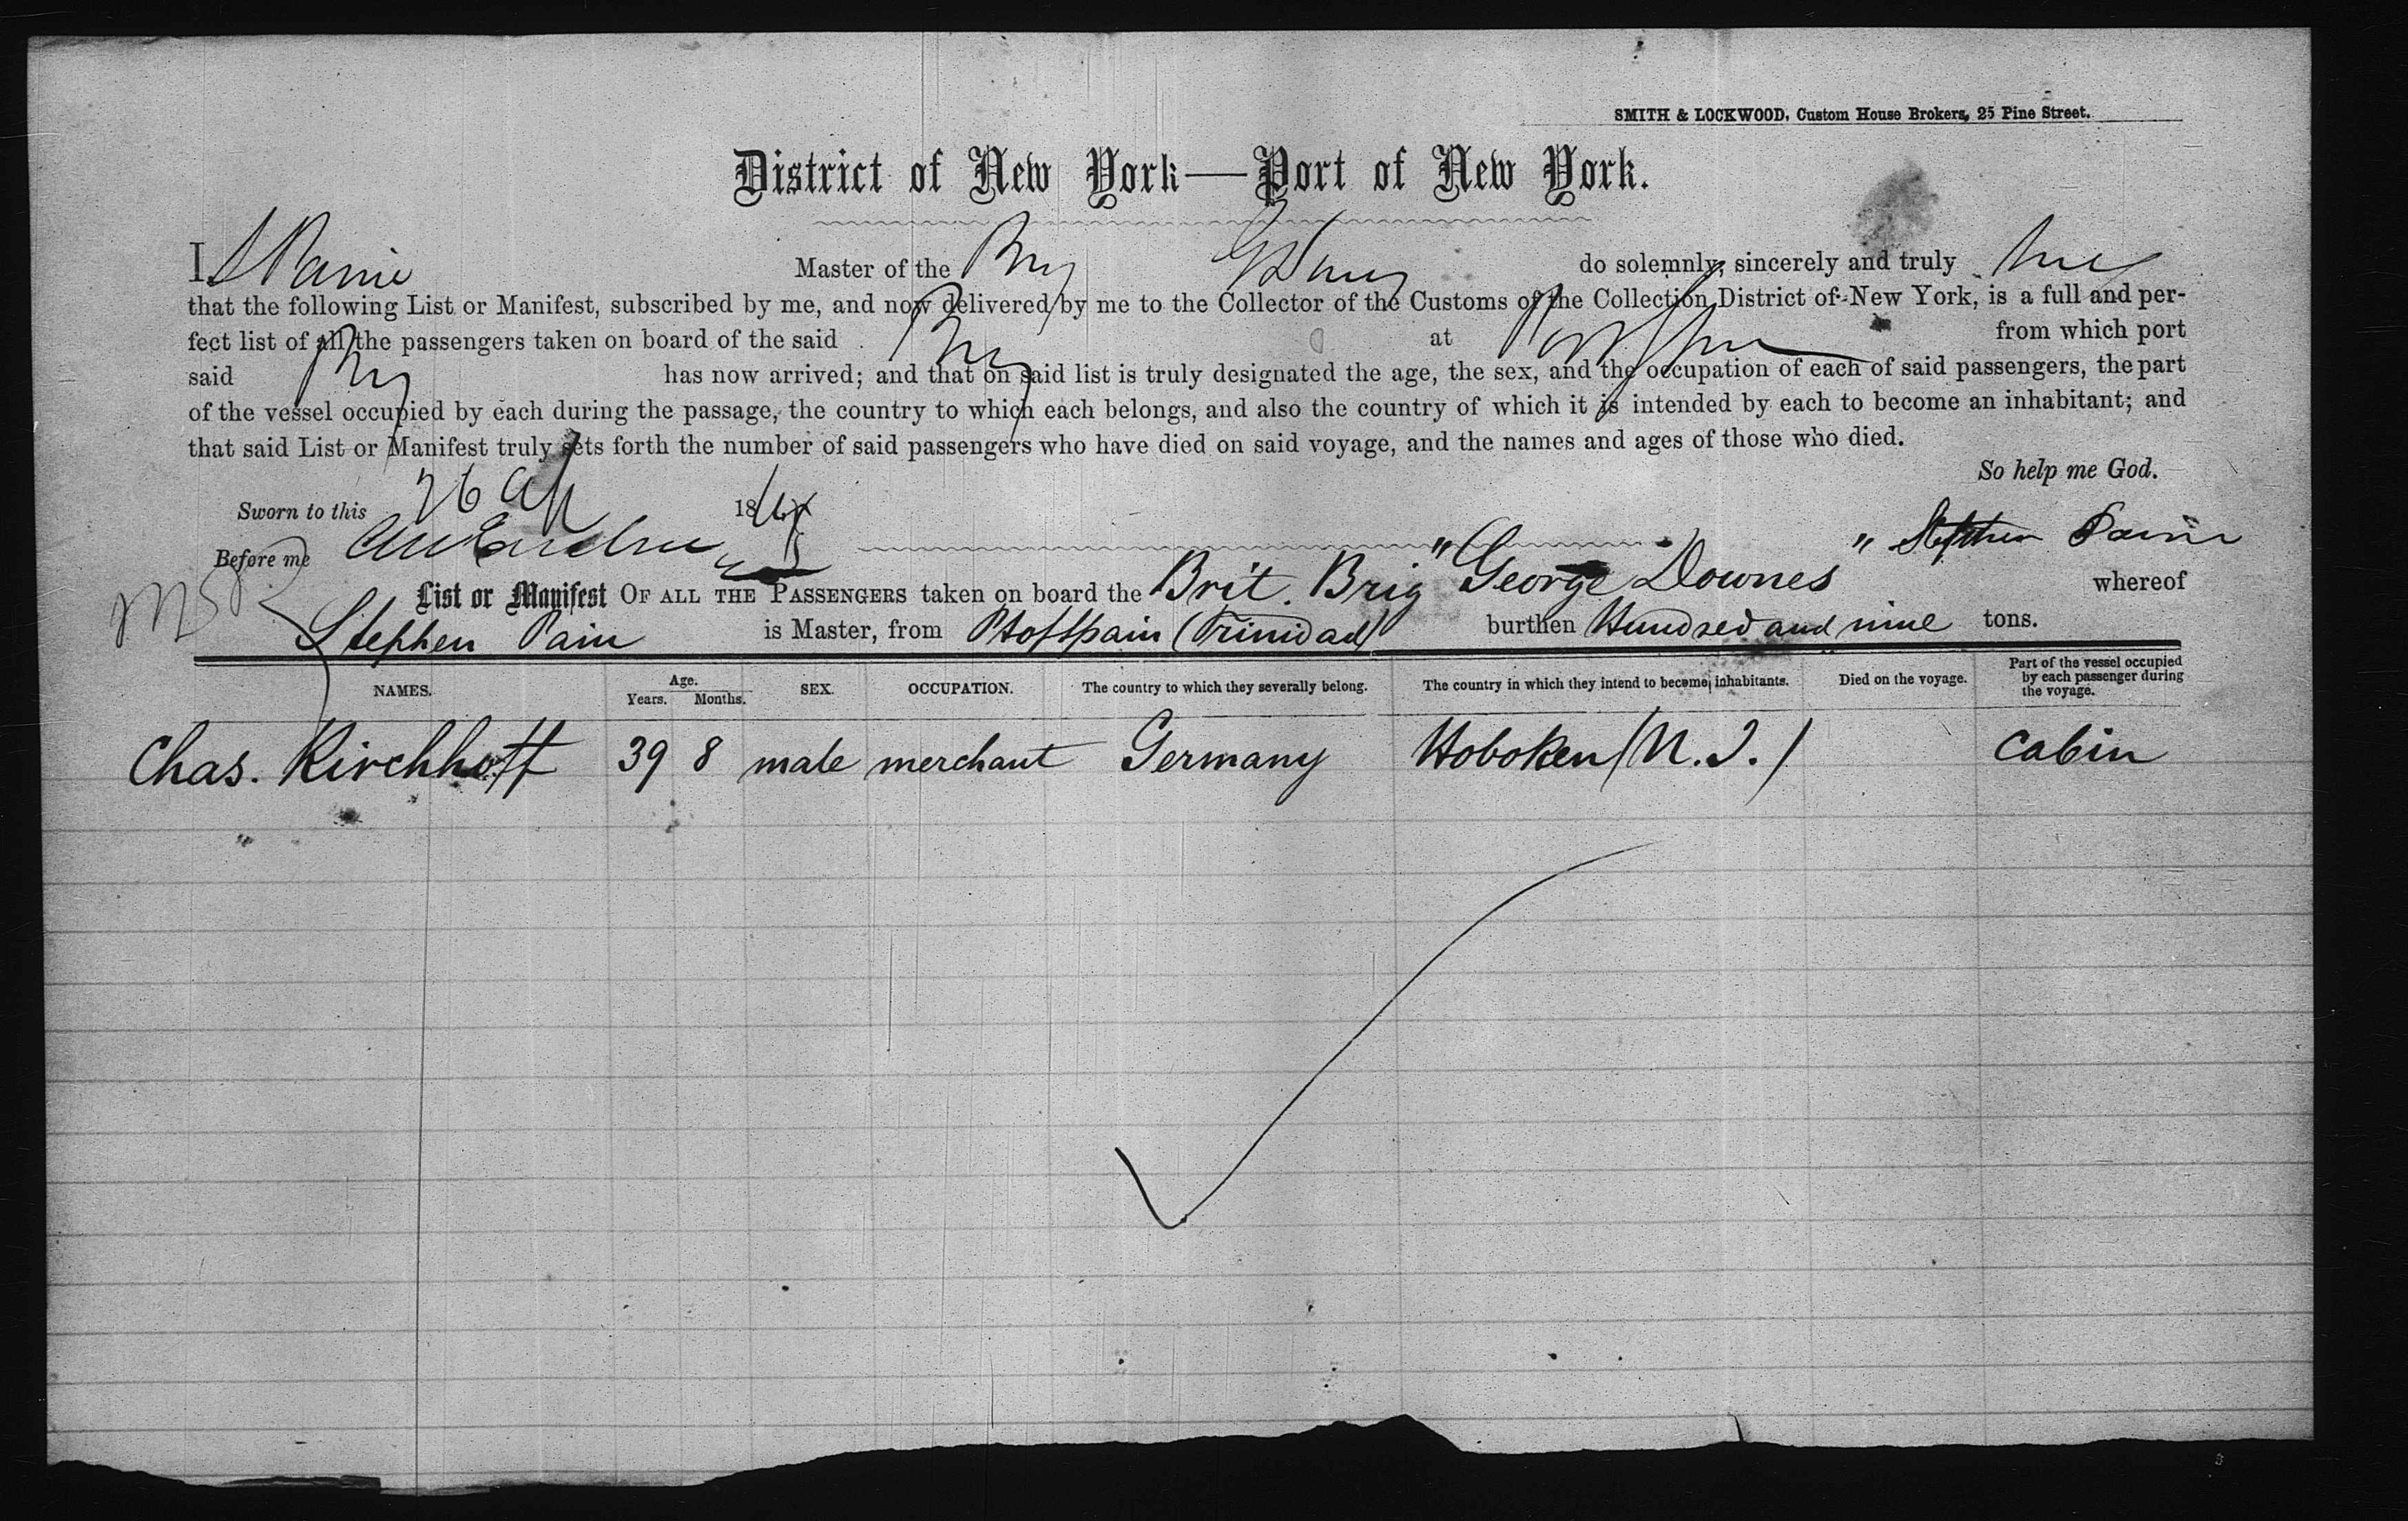 SMITH & LOCKWOOD, Custom House Brokers, 25 Pine Street.
District of New York—Port of New York.
I, Master of the Brig do solemnly, sincerely and truly
that the following List or Manifest, subscribed by me, and now delivered by me to the Collector of the Customs of the Collection District of New York, is a full and per-
fect list of all the passengers taken on board of the said Brig at from which port
said Brig has now arrived; and that on said list is truly designated the age, the sex, and the occupation of each of said passengers, the part
of the vessel occupied by each during the passage, the country to which each belongs, and also the country of which it is intended by each to become an inhabitant; and
that said List or Manifest truly sets forth the number of said passengers who have died on said voyage, and the names and ages of those who died.
So help me God.
Sworn to this 26 Ap 18
Before me Stephen
List or Manifest OF ALL THE PASSENGERS taken on board the Brit. Brig "George Downes" whereof
Stephen Pain is Master, from PtofSpain (Trinidad) burthen Hundred and nine tons.
NAMES. Age. Years. Months. SEX. OCCUPATION. The country to which they severally belong. The country in which they intend to become inhabitants. Died on the voyage. Part of the vessel occupied by each passenger during the voyage.
Chas. Kirchhoff 39 8 male merchant Germany Hoboken (N.J.) Cabin